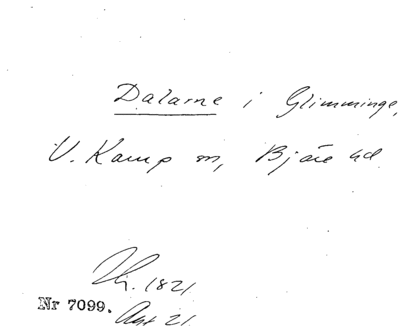 Dalarne i Glimminge,
V. Karup sn, Bjäre hd
Lh. 1821
Nr 7099. Akt 21